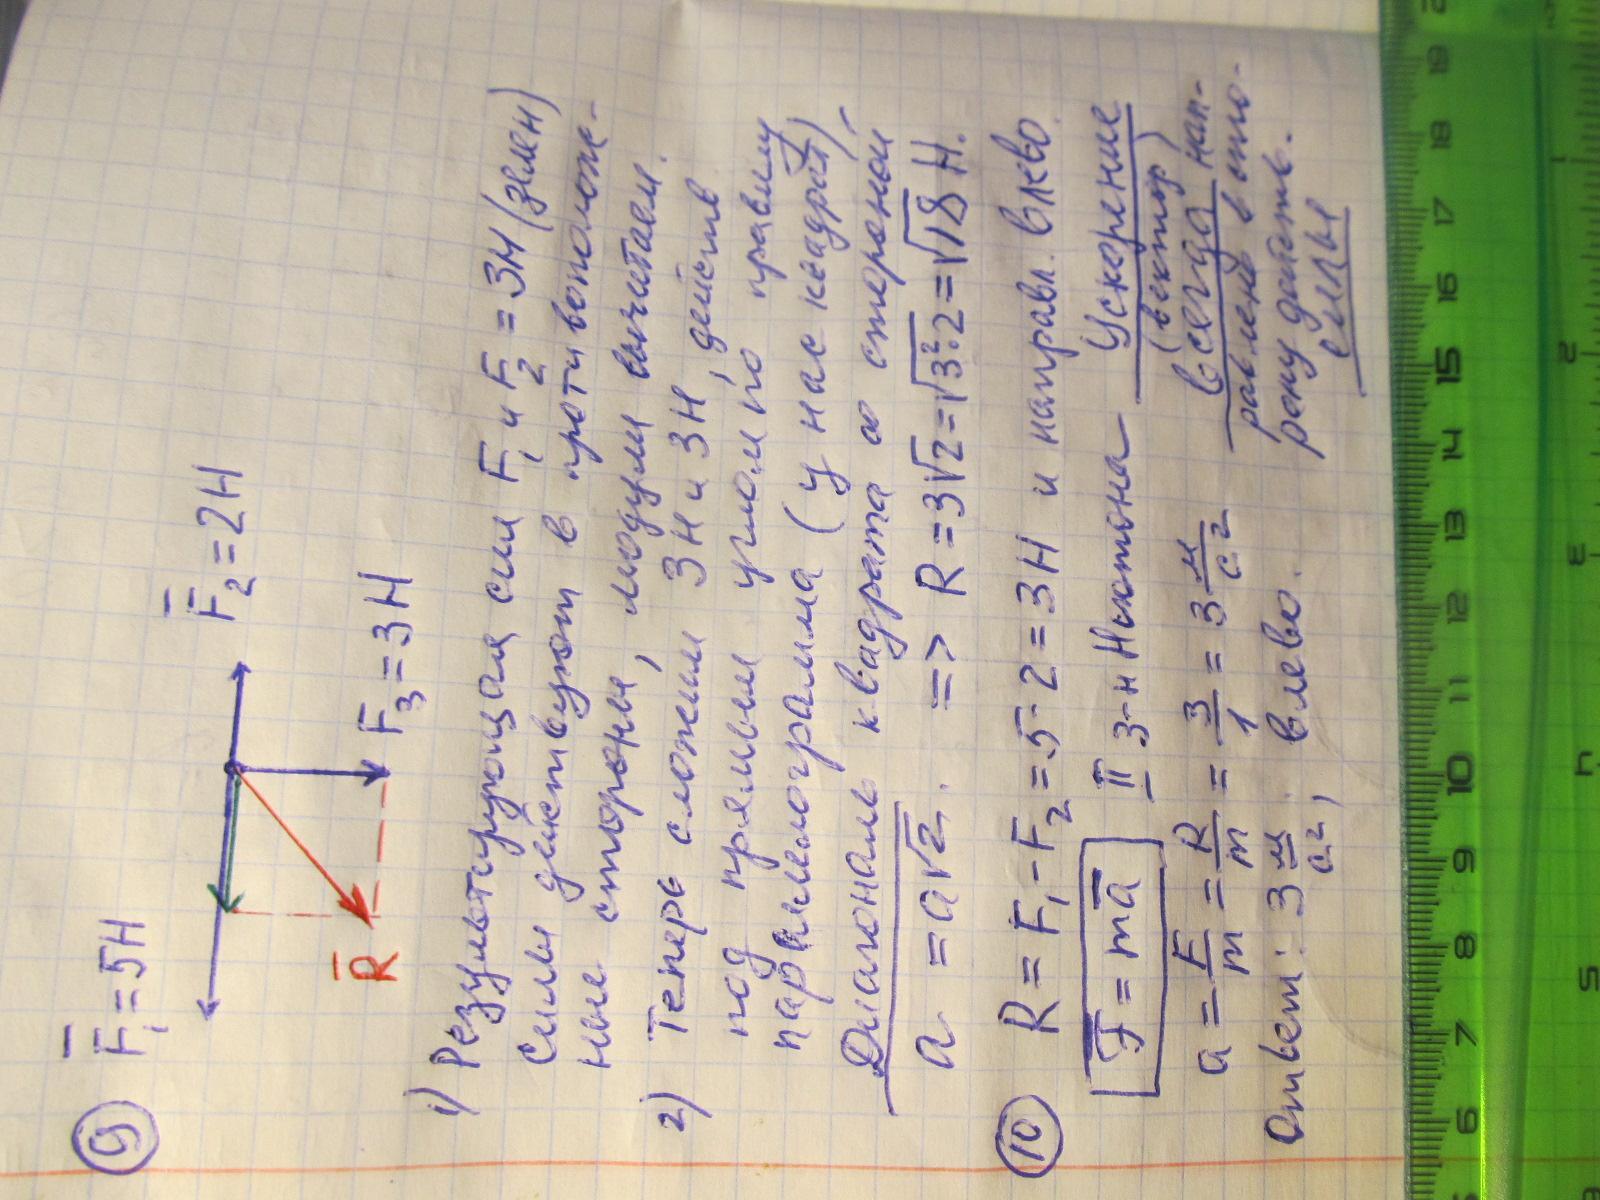 9
F₁=5Н
F₂=2Н
F₃=3Н
R
1) Результирующая сил F₁ и F₂ = 3Н (зелен)
Силы действуют в противополож-
ные стороны, модули вычитаем.
2) Теперь сложим 3Н и 3Н, действ
под прямым углом по правилу
параллелограмма (у нас квадрат)
Диагональ квадрата со стороной
a = a√2. => R = 3√2 = √3²·2 = √18 Н.
10
R = F₁ - F₂ = 5 - 2 = 3Н и направл. влево.
F = ma II з-н Ньютона
a = F/m = R/m = 3/1 = 3 м/с²
Ответ: 3 м/с², влево.
Ускорение
(вектор)
всегда нап-
равлено в сто-
рону действ.
силы
6 7 8 9 10 11 12 13 14 15 16 17 18 19
1 2 3 4 5